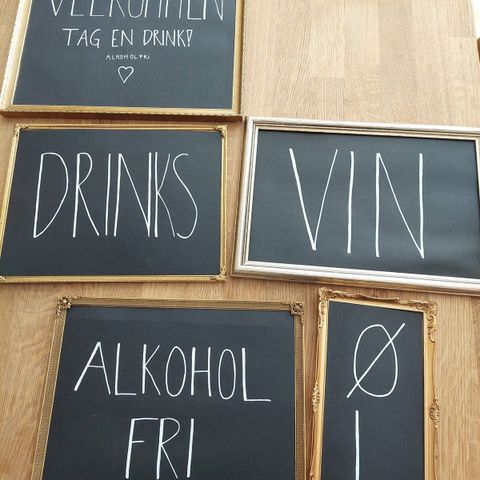 VELKOMMEN
TAG EN DRINK!
ALKOHOLFRI
DRINKS
VIN
ALKOHOL
FRI
Ø